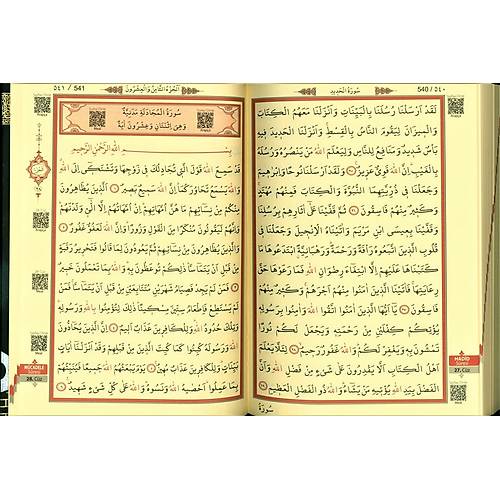 ٥٤٠ / 540
سُورَةُ الْحَدِيدِ
لَقَدْ اَرْسَلْنَا رُسُلَنَا بِالْبَيِّنَاتِ وَاَنْزَلْنَا مَعَهُمُ الْكِتَابَ
وَالْمِيزَانَ لِيَقُومَ النَّاسُ بِالْقِسْطِ وَاَنْزَلْنَا الْحَدِيدَ فِيهِ
بَأْسٌ شَدِيدٌ وَمَنَافِعُ لِلنَّاسِ وَلِيَعْلَمَ اللّٰهُ مَنْ يَنْصُرُهُ وَرُسُلَهُ
بِالْغَيْبِ اِنَّ اللّٰهَ قَوِيٌّ عَزِيزٌ ﴿٢٥﴾ وَلَقَدْ اَرْسَلْنَا نُوحًا وَاِبْرٰهِيمَ
وَجَعَلْنَا فِي ذُرِّيَّتِهِمَا النُّبُوَّةَ وَالْكِتَابَ فَمِنْهُمْ مُهْتَدٍ
وَكَثِيرٌ مِنْهُمْ فَاسِقُونَ ﴿٢٦﴾ ثُمَّ قَفَّيْنَا عَلٰى اٰثَارِهِمْ بِرُسُلِنَا
وَقَفَّيْنَا بِعِيسَى ابْنِ مَرْيَمَ وَاٰتَيْنَاهُ الْاِنْجِيلَ وَجَعَلْنَا فِي
قُلُوبِ الَّذِينَ اتَّبَعُوهُ رَأْفَةً وَرَحْمَةً وَرَهْبَانِيَّةً ابْتَدَعُوهَا مَا
كَتَبْنَاهَا عَلَيْهِمْ اِلَّا ابْتِغَاءَ رِضْوَانِ اللّٰهِ فَمَا رَعَوْهَا حَقَّ
رِعَايَتِهَا فَاٰتَيْنَا الَّذِينَ اٰمَنُوا مِنْهُمْ اَجْرَهُمْ وَكَثِيرٌ مِنْهُمْ
فَاسِقُونَ ﴿٢٧﴾ يَا اَيُّهَا الَّذِينَ اٰمَنُوا اتَّقُوا اللّٰهَ وَاٰمِنُوا بِرَسُولِهِ
يُؤْتِكُمْ كِفْلَيْنِ مِنْ رَحْمَتِهِ وَيَجْعَلْ لَكُمْ نُورًا
تَمْشُونَ بِهِ وَيَغْفِرْ لَكُمْ وَاللّٰهُ غَفُورٌ رَحِيمٌ ﴿٢٨﴾ لِئَلَّا يَعْلَمَ
اَهْلُ الْكِتَابِ اَلَّا يَقْدِرُونَ عَلٰى شَيْءٍ مِنْ فَضْلِ اللّٰهِ وَاَنَّ
الْفَضْلَ بِيَدِ اللّٰهِ يُؤْتِيهِ مَنْ يَشَاءُ وَاللّٰهُ ذُو الْفَضْلِ الْعَظِيمِ ﴿٢٩﴾
سُورَةُ
HADİD
Sûresi
27. Cüz
٥٤١ / 541
اَلْجُزْءُ الثَّامِنُ وَالْعِشْرُونَ
سُورَةُ الْمُجَادَلَةِ مَدَنِيَّةٌ
وَهِيَ اثْنَتَانِ وَعِشْرُونَ اٰيَةً
بِسْمِ اللّٰهِ الرَّحْمٰنِ الرَّحِيمِ
قَدْ سَمِعَ اللّٰهُ قَوْلَ الَّتِي تُجَادِلُكَ فِي زَوْجِهَا وَتَشْتَكِي اِلَى اللّٰهِ
وَاللّٰهُ يَسْمَعُ تَحَاوُرَكُمَا اِنَّ اللّٰهَ سَمِيعٌ بَصِيرٌ ﴿١﴾ اَلَّذِينَ يُظَاهِرُونَ
مِنْكُمْ مِنْ نِسَائِهِمْ مَا هُنَّ اُمَّهَاتِهِمْ اِنْ اُمَّهَاتُهُمْ اِلَّا الّٰٓئِ وَلَدْنَهُمْ
وَاِنَّهُمْ لَيَقُولُونَ مُنْكَرًا مِنَ الْقَوْلِ وَزُورًا وَاِنَّ اللّٰهَ لَعَفُوٌّ غَفُورٌ ﴿٢﴾
وَالَّذِينَ يُظَاهِرُونَ مِنْ نِسَائِهِمْ ثُمَّ يَعُودُونَ لِمَا قَالُوا فَتَحْرِيرُ رَقَبَةٍ
مِنْ قَبْلِ اَنْ يَتَمَاسَّا ذٰلِكُمْ تُوعَظُونَ بِهِ وَاللّٰهُ بِمَا تَعْمَلُونَ خَبِيرٌ
﴿٣﴾ فَمَنْ لَمْ يَجِدْ فَصِيَامُ شَهْرَيْنِ مُتَتَابِعَيْنِ مِنْ قَبْلِ اَنْ يَتَمَاسَّا فَمَنْ
لَمْ يَسْتَطِعْ فَاِطْعَامُ سِتِّينَ مِسْكِينًا ذٰلِكَ لِتُؤْمِنُوا بِاللّٰهِ وَرَسُولِهِ
وَتِلْكَ حُدُودُ اللّٰهِ وَلِلْكَافِرِينَ عَذَابٌ اَلِيمٌ ﴿٤﴾ اِنَّ الَّذِينَ يُحَادُّونَ
اللّٰهَ وَرَسُولَهُ كُبِتُوا كَمَا كُبِتَ الَّذِينَ مِنْ قَبْلِهِمْ وَقَدْ اَنْزَلْنَا اٰيَاتٍ
بَيِّنَاتٍ وَلِلْكَافِرِينَ عَذَابٌ مُهِينٌ ﴿٥﴾ يَوْمَ يَبْعَثُهُمُ اللّٰهُ جَمِيعًا فَيُنَبِّئُهُمْ
بِمَا عَمِلُوا اَحْصٰيهُ اللّٰهُ وَنَسُوهُ وَاللّٰهُ عَلٰى كُلِّ شَيْءٍ شَهِيدٌ ﴿٦﴾
MÜCADELE
Sûresi
28. Cüz